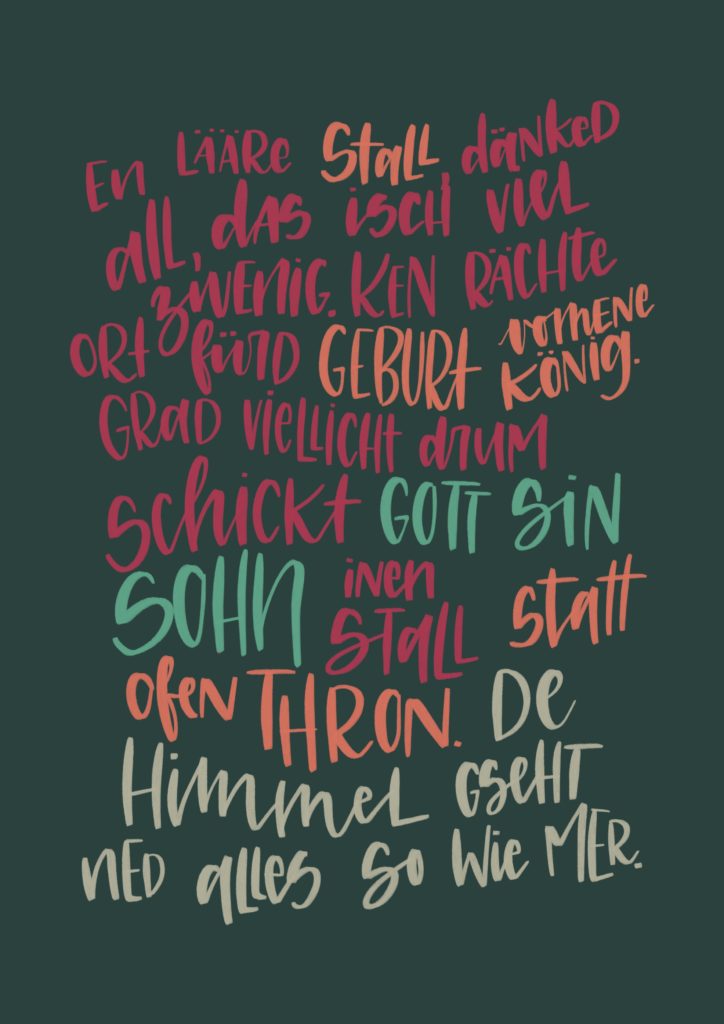 En lääre Stall, dänked
all, das isch viel
zwenig. Ken rächte
Ort fürd Geburt vomene
König.
Grad viellicht drum
schickt Gott sin
Sohn inen Stall statt
ofen Thron. De
Himmel gseht
ned alles so wie mer.